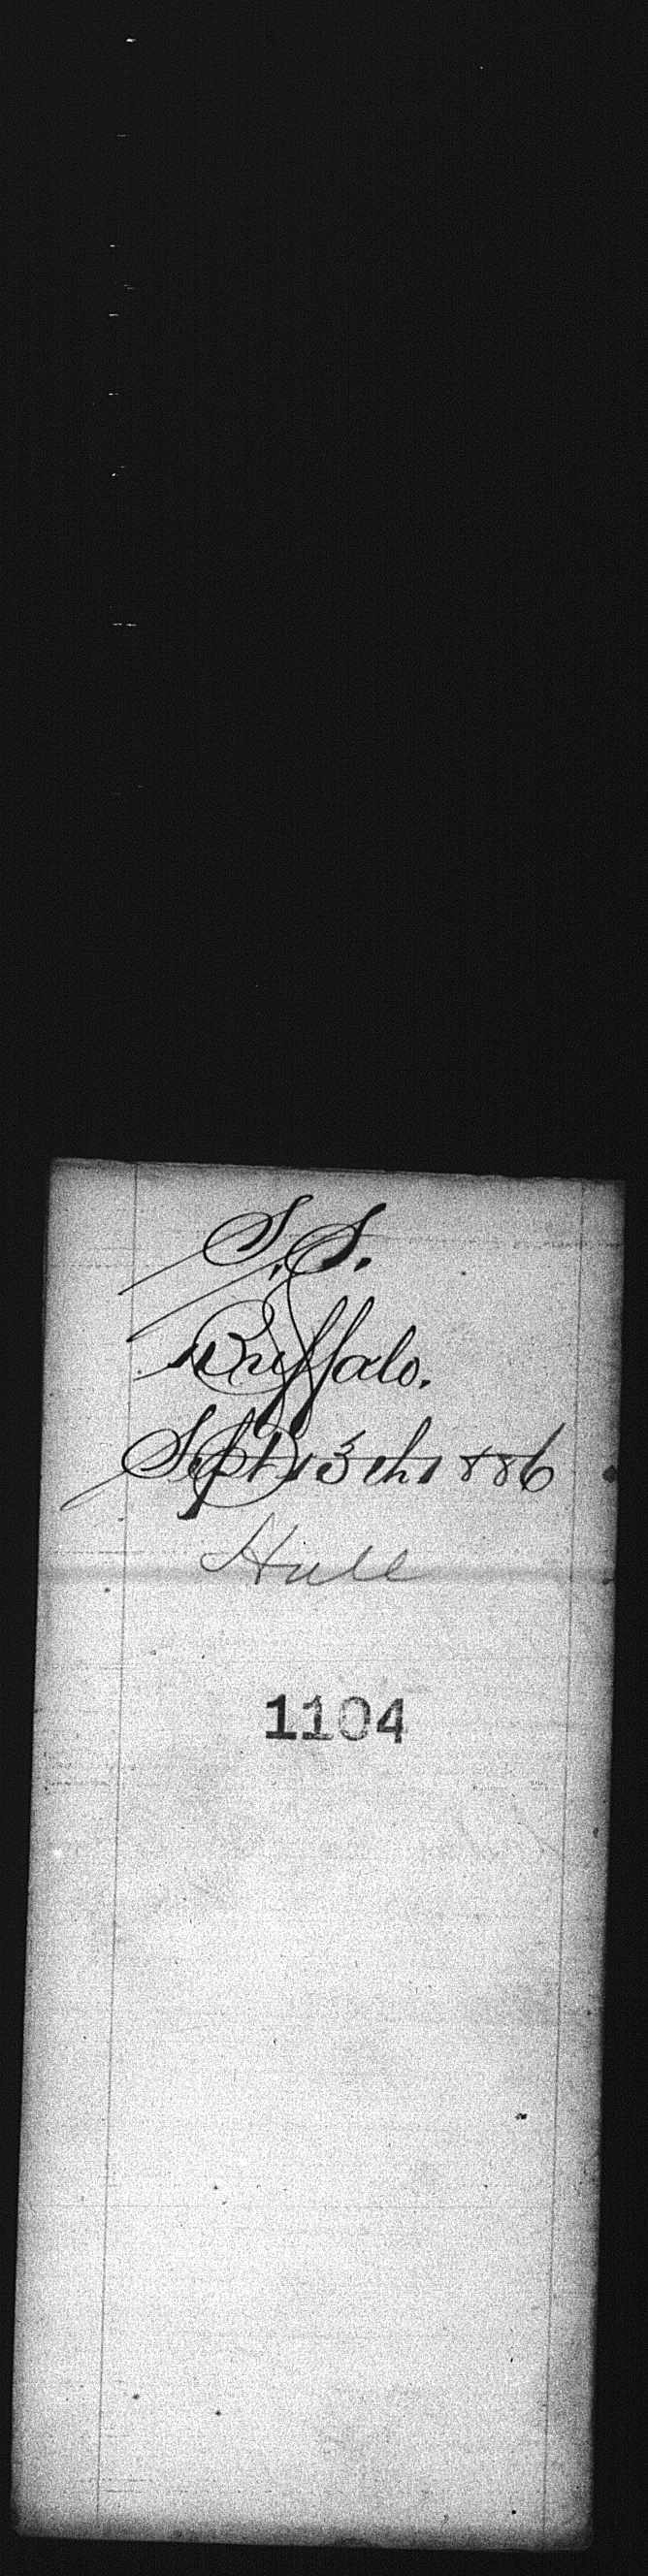 S.S.
Buffalo.
Sept 13th 1886
Hull
1104